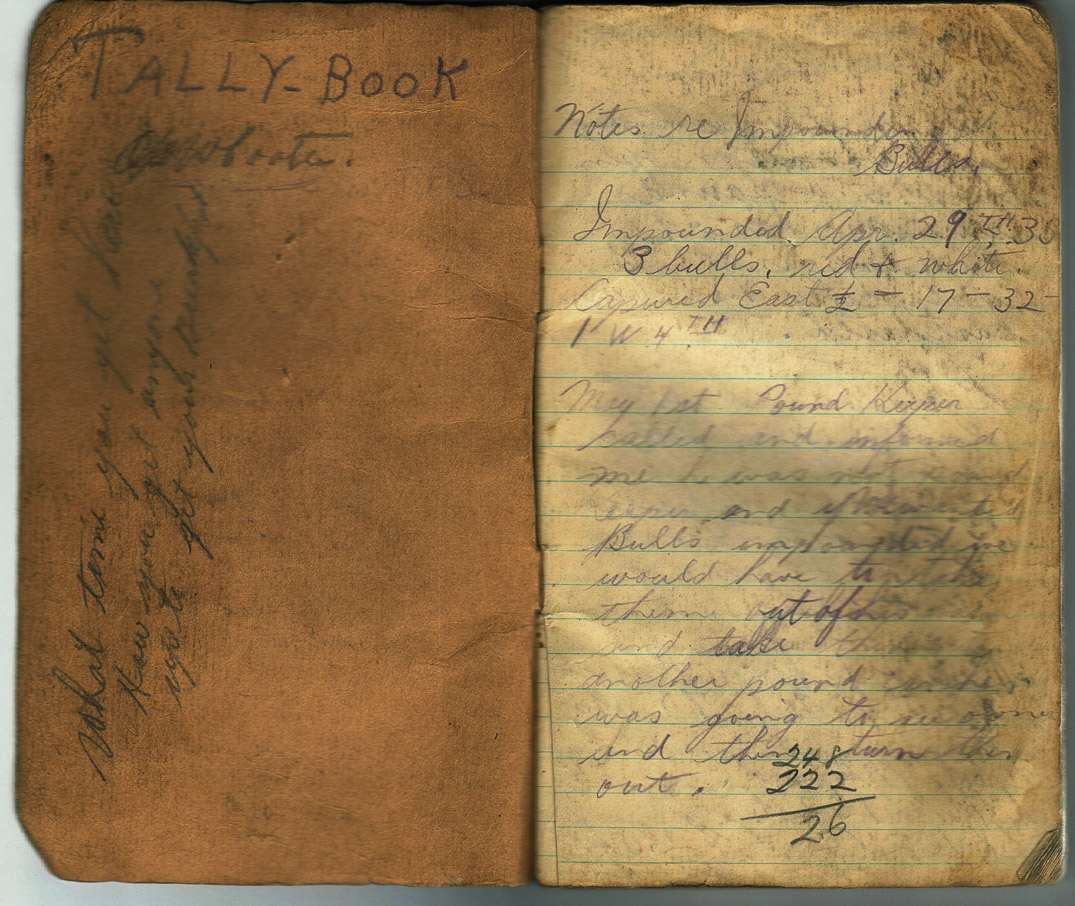 TALLY-BOOK
What time you get
How you get anyone
get your
Notes re Impounding
Bulls.
Impounded Apr. 29TH 30
3 bulls, red & white.
Capured East ½ - 17 - 32 -
1 W. 4TH
May 1st Pound Keeper
called and informed
me h was not pound
keeper and if I wanted
Bulls impounded we
would have to take
them out of his
and take them
another pound
was going to see owner
and then turn them
out.
248
222
26